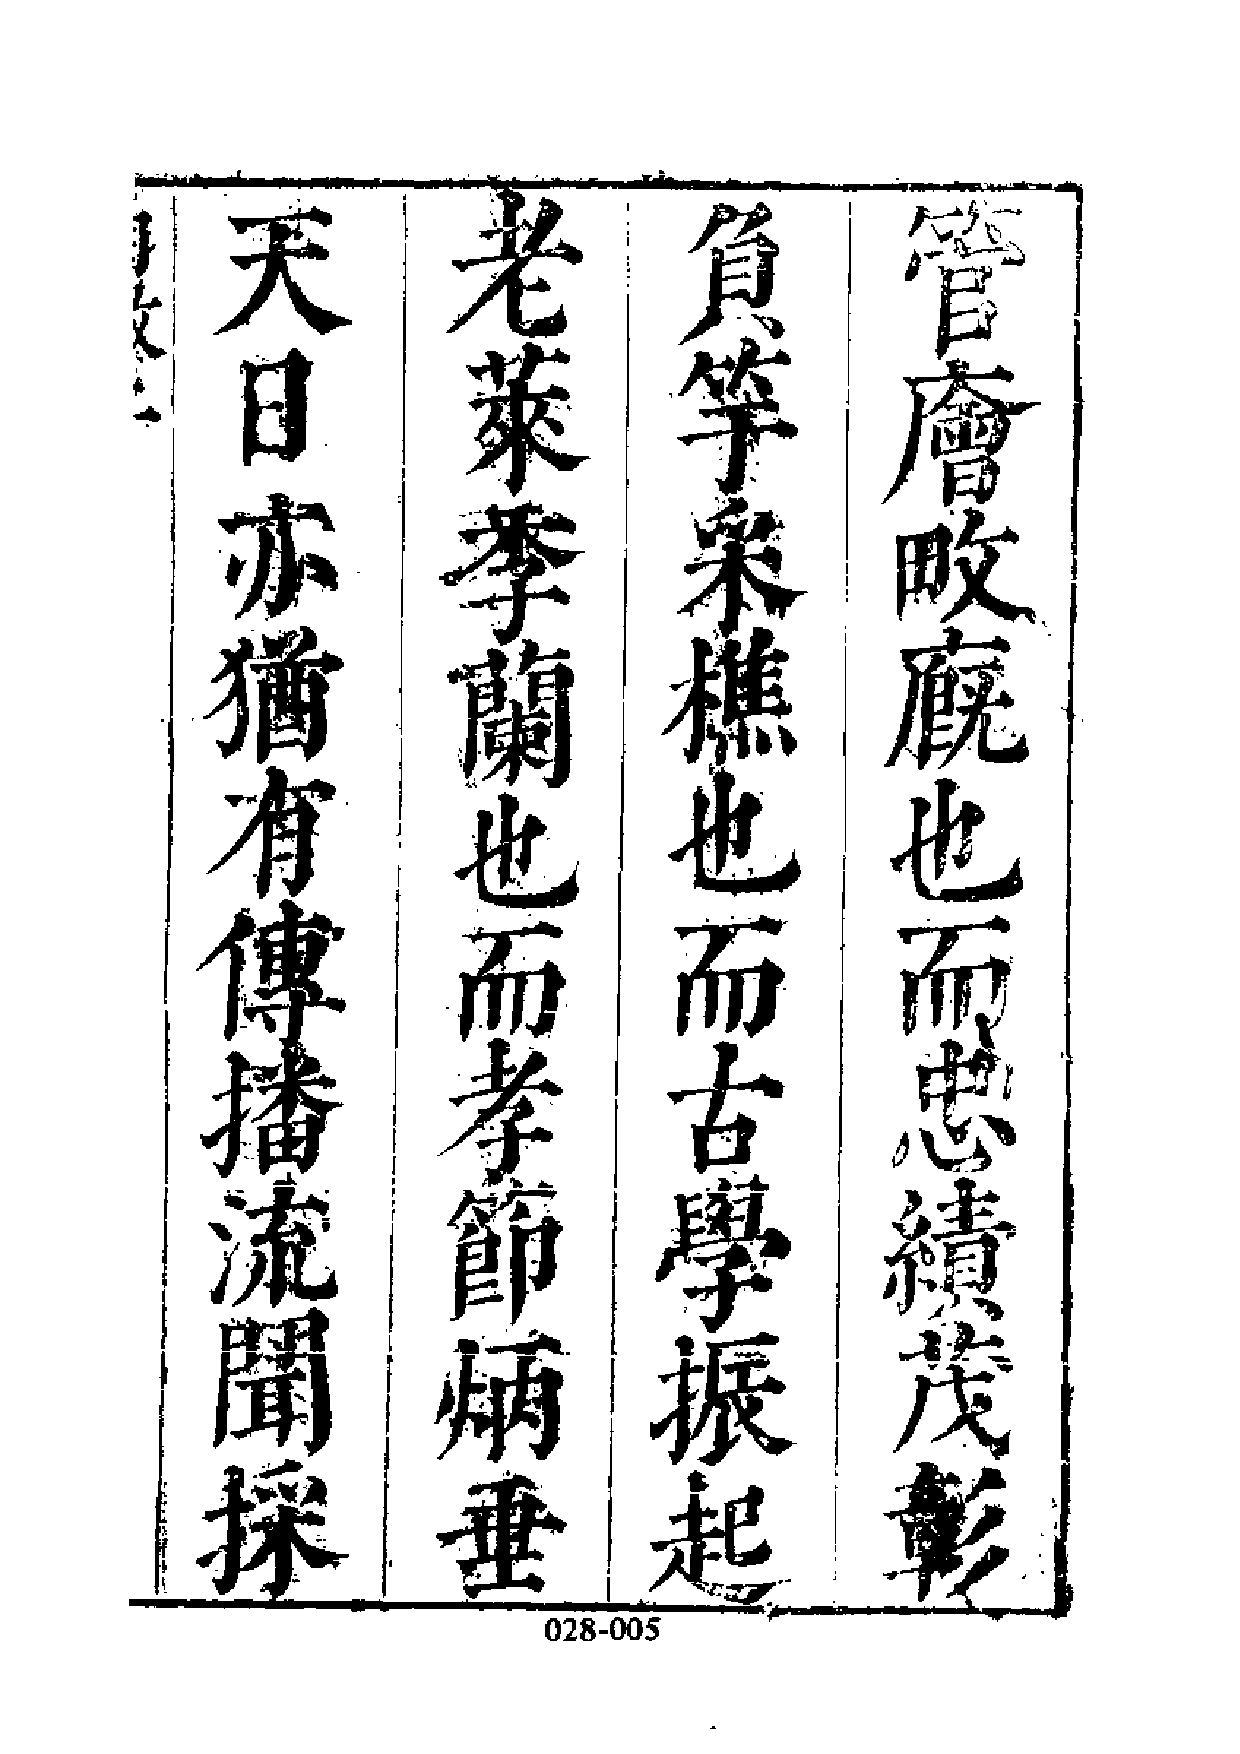 管廥畋廐也而忠績茂彰
負笇采樵也而古學振起
老萊季蘭也而孝節炳垂
天日亦猶有傳播流聞採
028-005